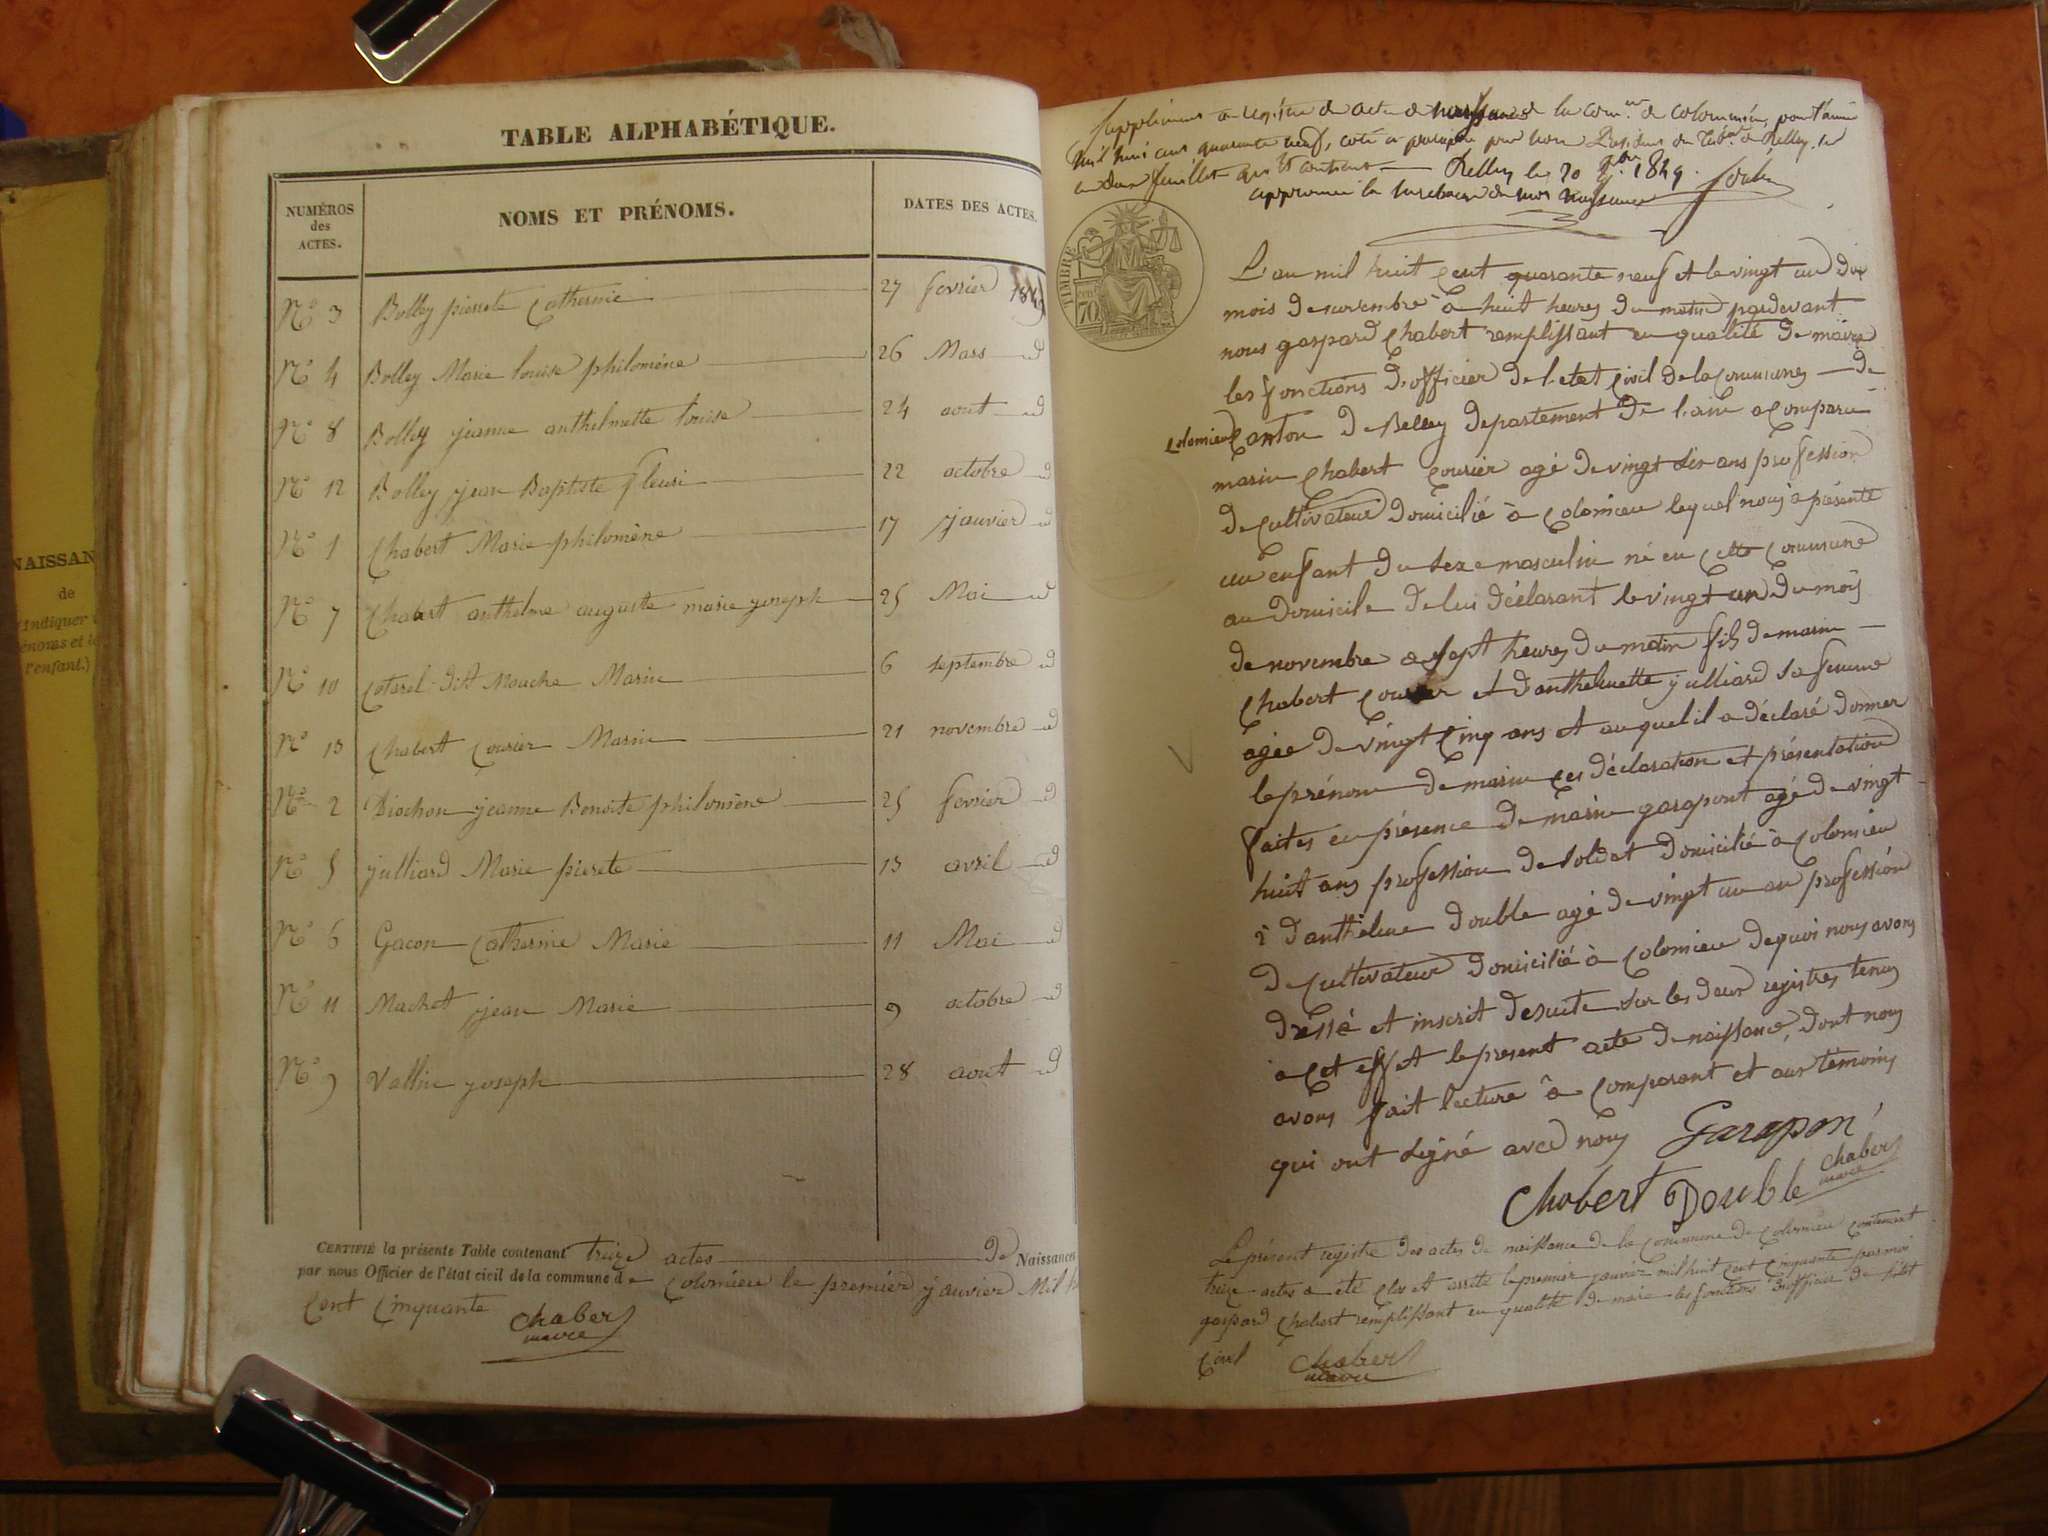 NAISSAN
de
(Indiquer
énoms et le
l'enfant.)
TABLE ALPHABÉTIQUE.
NUMÉROS des ACTES. NOMS ET PRÉNOMS. DATES DES ACTES.
N.o 3 Bolley pierrete Catherine 27 fevrier 1849
N.o 4 Bolley Marie louise philomène 26 Mars d
N.o 8 Bolley jeanne anthelmette louise 24 aout d
N.o 12 Bolley jean Baptiste fleuri 22 octobre d
N.o 1 Chabert Marie philomène 17 janvier d
N.o 7 Chabert anthelme auguste marie joseph 25 Mai d
N.o 10 Cotarel dit Mouche Marin 6 septembre d
N.o 13 Chabert Courier Marin 21 novembre d
N.o 2 Diochon jeanne Benoite philomène 25 fevrier d
N.o 5 julliard Marie pierete 13 avril d
N.o 6 Gacon Catherine Marie 11 Mai d
N.o 11 Machet jean Marie 9 octobre d
N.o 9 Vallin joseph 28 aout d
CERTIFIÉ la présente Table contenant treize actes de Naissances
par nous Officier de l'état civil de la commune de Colomieu le premier janvier Mil h
Cent Cinquante
Chabert
maire
Supplément au registre des actes de naissance de la com.ne de colomieu, pour l'année
mil huit cent quarante neuf, coté et paraphé par nous Président du Trib.al de Belley, sur
les deux feuillets qu'il contient Belley le 20 9bre 1849.
approuvée la surcharge du mot naissance
TIMBRE
70
L'an mil huit cent quarante neuf et le vingt un du
mois de novembre à huit heures du matin pardevant
nous gaspard Chabert remplissant en qualité de maire
les fonctions d'officier de l'etat Civil de la Commune de
Colomieu Canton de Belley departement de l'ain a Comparu
marin Chabert Courier agé de vingt six ans profession
de Cultivateur domicilié à Colomieu lequel nous a présenté
un enfant du sexe masculin né en cette Commune
au domicile de lui déclarant le vingt un du mois
de novembre a sept heures du matin fils de marin
Chabert Courier et d'anthelmette julliard sa femme
agée de vingt Cinq ans et auquel il a déclaré donner
le prénom de marin Ces déclaration et présentation
faites en présence de marin garapont agé de vingt
huit ans profession de soldat domicilié à Colomieu
2º d'anthelme double agé de vingt un an profession
de Cultivateur domicilié à Colomieu dequoi nous avons
dressé et inscrit desuite sur les deux registres tenus
à cet effet le present acte de naissance, dont nous
avons fait lecture à Comparant et aux témoins
qui ont signé avec nous Garapon
Chabert Double Chabert
maire
Le présent registre des actes de naissance de la Commune de Colomieu Contenant
treize actes a été Clos et arrété le premier janvier mil huit Cent Cinquante par moi
gaspard Chabert remplissant en qualité de maire les fonctions d'officier de l'état
Civil
Chabert
maire